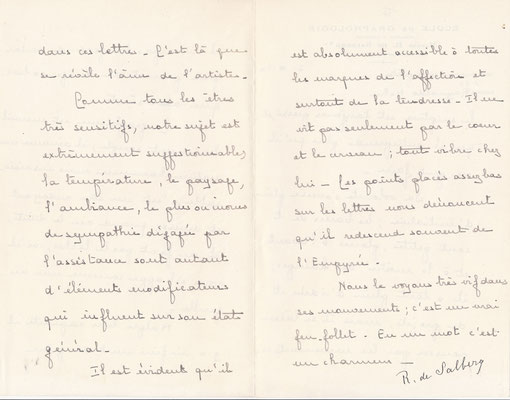 dans ces lettres - C'est là que
se révèle l'âme de l'artiste -
Comme tous les êtres
très sensitifs, notre sujet est
extrêmement suggestionnable ;
la température, le paysage,
l'ambiance, le plus ou moins
de sympathie dégagée par
l'assistance sont autant
d'éléments modificateurs
qui influent sur son état
général -
Il est évident qu'il
est absolument accessible à toutes
les marques de l'affection et
surtout de la tendresse - Il ne
vit pas seulement par le coeur
et le cerveau ; tout vibre chez
lui - Les points placés assez bas
sur les lettres nous dénoncent
qu'il redescend souvent de
l'Empyrée .
Nous le voyons très vif dans
ses mouvements ; c'est un vrai
feu-follet . En un mot c'est
un charmeur -
R. de Salberg